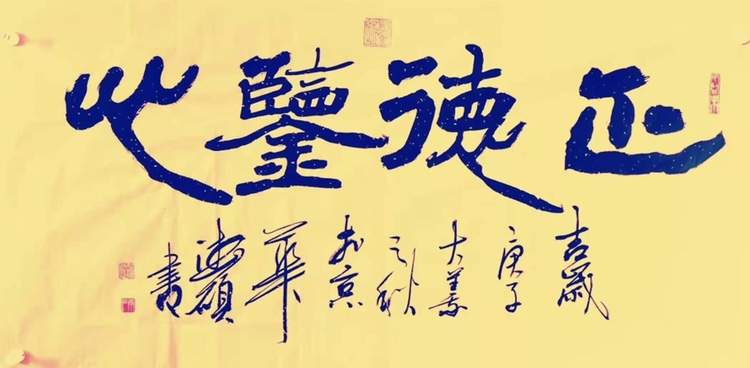 正德鑒心
吉歲
庚子
大美
之秋
於京
華
碩
書